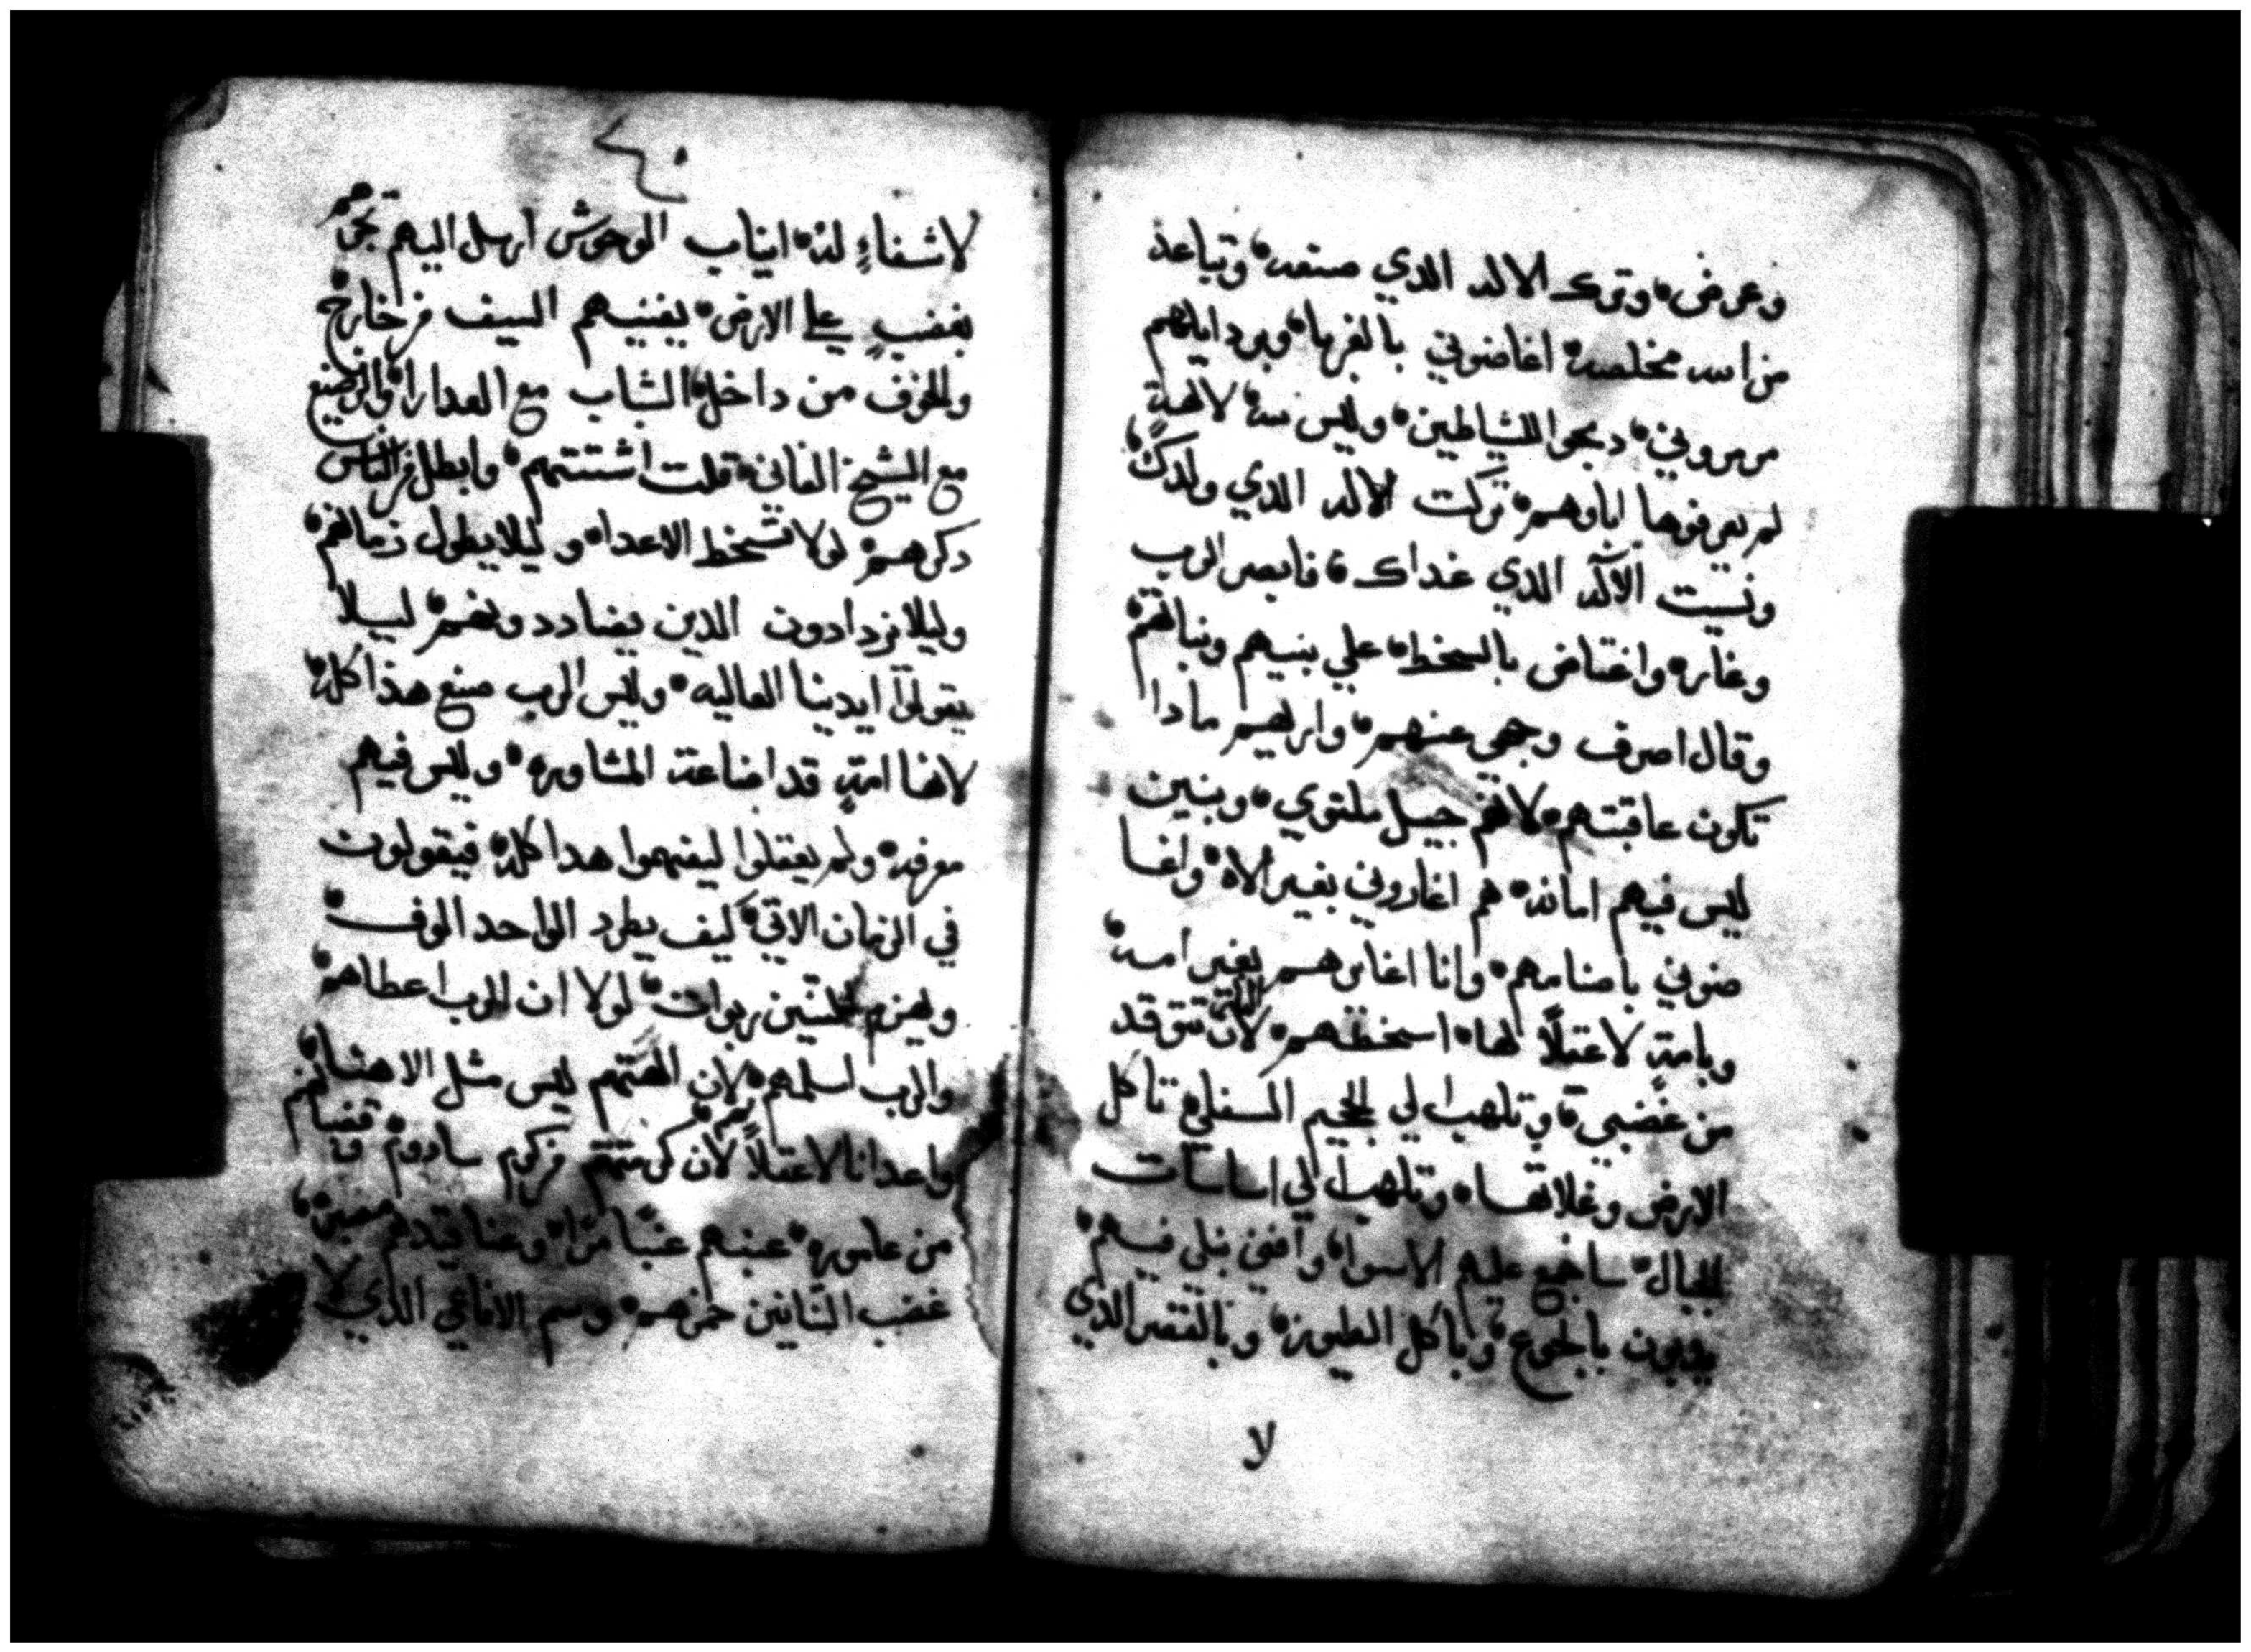 وعرض، وترك الاله الدي صنعه، وتباعد
من الله مخلصه، اغاضوني بالغربا، وبردايلهم
مرمروني، دبحوا للشياطين، وليس لله، لالهةٍ
لم يعرفوها اباوهم، تركت الاله الدي ولدك،
ونسيت الآله الدي غداك، فابصر الرب
وغار، واغتاض بالسخط، علي بنيهم وبناتهم،
وقال اصرف وجهي عنهم، واريهم مادا
تكون عاقبتهم، لانهم جيل ملتوي، وبنين
ليس فيهم امانه، هم اغاروني بغير الاه، واغا
ضوني باصنامهم، وانا اغايرهم بغير امه،
وبامةٍ لا عقلاً لها، اسخطهم، لان النار تتوقد
من غضبي، وتلهب الي الجحيم السفلي، تاكل
الارض وغلاتها، وتلهب الي اساسات
الجبال، ساجمع عليهم الاسوا، وافني نبلي فيهم،
يدوبون بالجوع، وباكل الطيور، وبالقفر الذي
لا
٤٠
لا شفاءٍ له، انياب الوحوش ارسل اليهم تجرهم
بغضبٍ علي الارض، يفنيهم السيف من خارج
والخوف من داخل، الشاب مع العدارا، والرضيع
مع الشيخ الفاني، قلت اشتتهم، وابطل من الناس
دكرهم، لولا تسخط الاعدا، وليلا يطول زمانهم،
وليلا يزدادون الدين يضاددونهم، ليلا
يقولوا ايدينا العاليه، وليس الرب صنع هذا كله،
لانها امةٍ قد اضاعت المشاوره، وليس فيهم
معرفه، ولم يعقلوا ليفهموا هدا كله، فيقولون
في الزمان الاتي، كيف يطرد الواحد الوف،
ويهزم الاثنين ربوات، لولا ان الرب اعطاهم،
والرب اسلمهم، لان الهتهم ليس مثل الاهنا،
واعدانا لا عقلاً لهم، لان كرمتهم من كرم سادوم، وقضبانهم
من عاموره، عنبهم عنبًا مرًا، وعناقيدهم مصبره،
غضب التنانين خمرهم، وسم الافاعي الذي لا